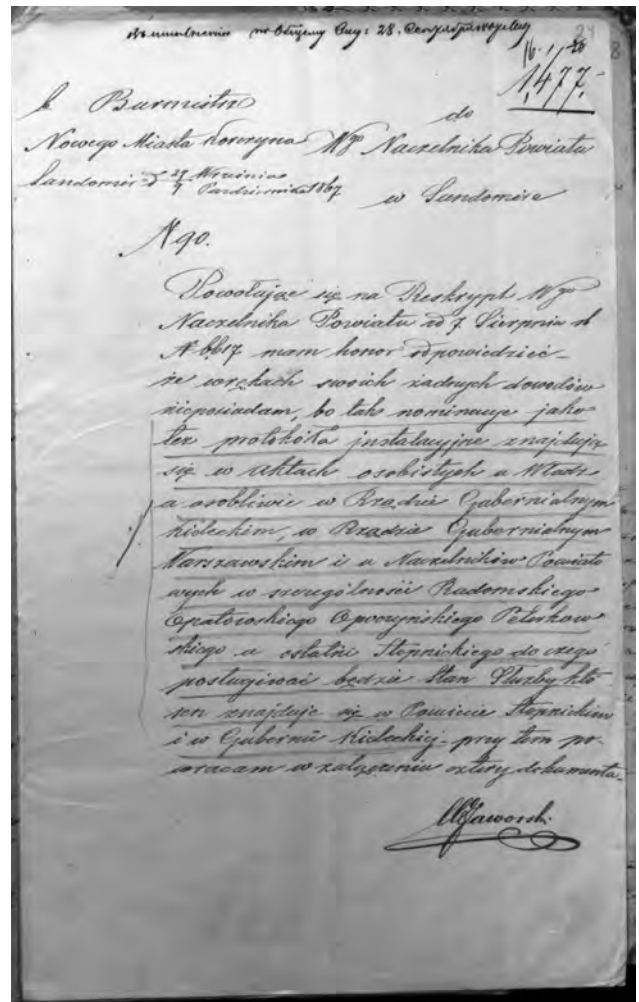 24
16.
1,477.
b. Burmistrz do
Nowego Miasta Korczyna Wgo Naczelnika Powiatu
Sandomierz d 27 Września
9 Października 1867 w Sandomirze
N 90.
Powołując się na Reskrypt Wgo
Naczelnika Powiatu od 7 Sierpnia
N 6617 mam honor odpowiedzieć
że w rękach swoich żadnych dowodów
nieposiadam, bo tak nominacyje jako
też protokóła instalacyjne znajdują
się w Aktach osobistych u Władz
a osobliwie w Rządzie Gubernialnym
Kieleckim, w Rządzie Gubernialnym
Warszawskim i u Naczelników Powiato
wych w szczególności Radomskiego
Opatowskiego Opoczyńskiego Petrkow
skiego a ostatni Stopnickiego do czego
posługiwać będzie Stan Służby któ
ren znajduje się w Powiecie Stopnickim
i w Gubernii Kieleckiej - przy tem po-
wracam w załączeniu cztery dokumenta.
Jaworski